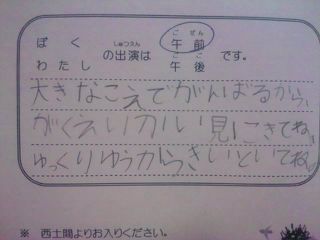 ぼく
わたし
の出演は
しゅつえん
午前
ごぜん
午後
ごご
です。
大きなこえでがんばるから、
がくえいカい見にきてね。
ゆっくりゆうからきいといてね。
※ 西土間よりお入りください。